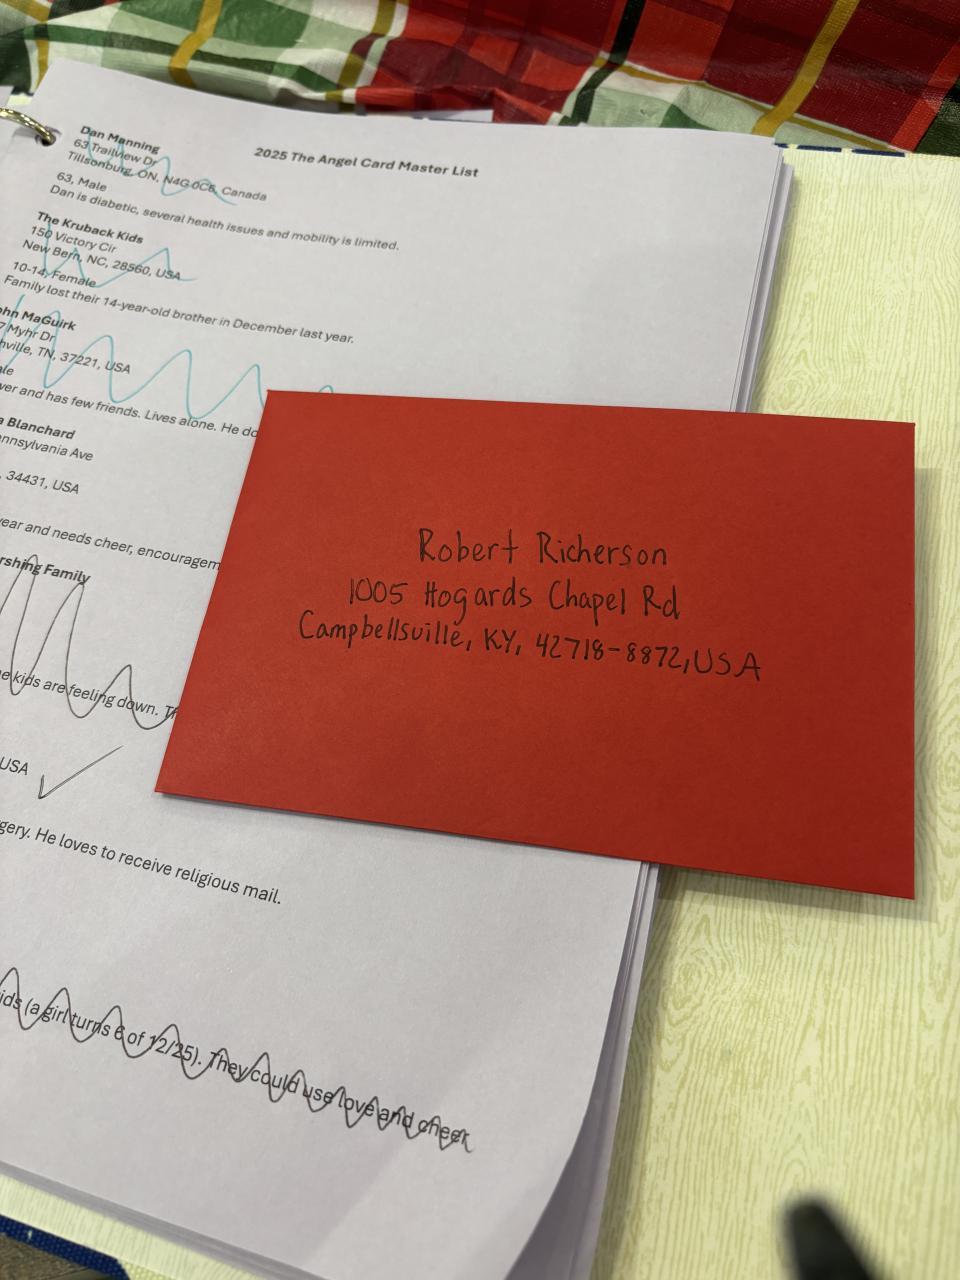 2025 The Angel Card Master List
Dan Manning
63 Trailview Dr
Tillsonburg, ON, N4G 0C6, Canada
63, Male
Dan is diabetic, several health issues and mobility is limited.
The Kruback Kids
150 Victory Cir
New Bern, NC, 28560, USA
10-14, Female
Family lost their 14-year-old brother in December last year.
ohn MaGuirk
7 Myhr Dr
hville, TN, 37221, USA
ale
ver and has few friends. Lives alone. He do
a Blanchard
ennsylvania Ave
, 34431, USA
year and needs cheer, encouragem
rshing Family
e kids are feeling down. Th
USA
gery. He loves to receive religious mail.
ids (a girl turns 6 of 12/25). They could use love and cheer
Robert Richerson
1005 Hogards Chapel Rd
Campbellsville, KY, 42718-8872, USA